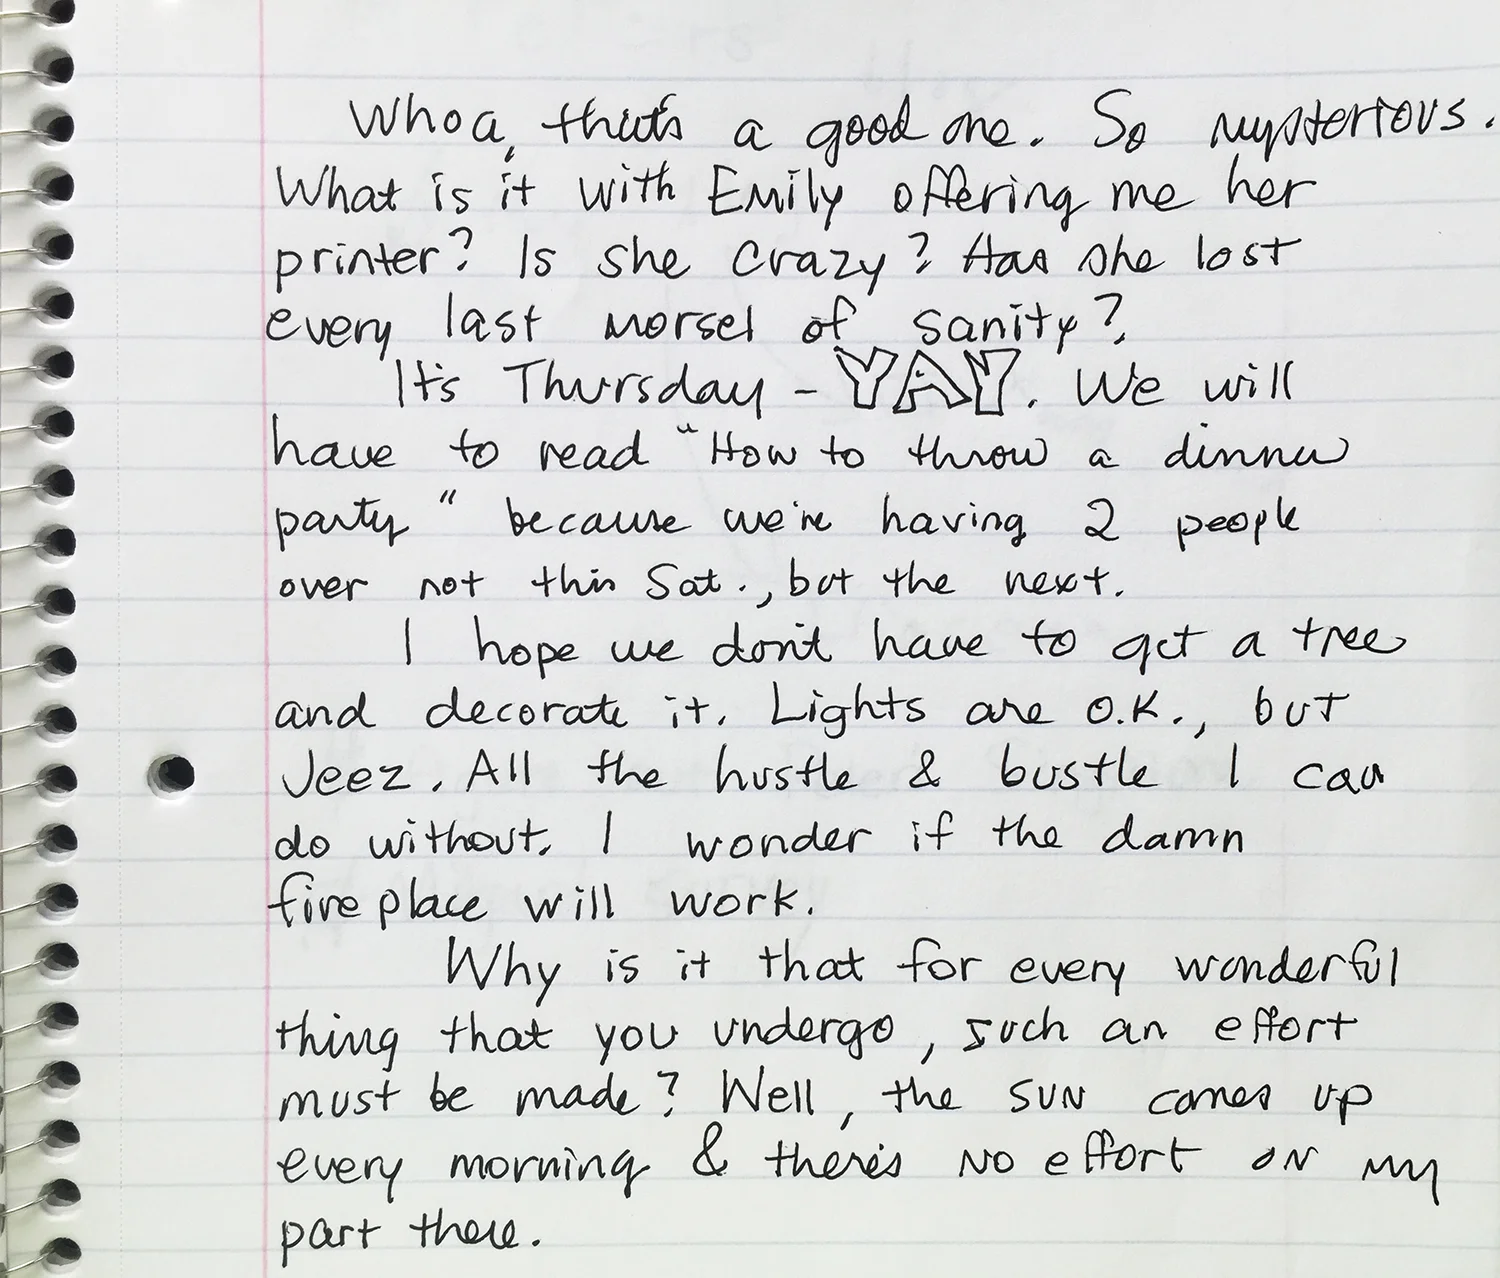 Whoa, that's a good one. So mysterious.
What is it with Emily offering me her
printer? Is she crazy? Has she lost
every last morsel of sanity?
It's Thursday - YAY. We will
have to read "How to throw a dinner
party" because we're having 2 people
over not this Sat., but the next.
I hope we don't have to get a tree
and decorate it. Lights are O.K., but
Jeez. All the hustle & bustle I can
do without. I wonder if the damn
fireplace will work.
Why is it that for every wonderful
thing that you undergo, such an effort
must be made? Well, the sun comes up
every morning & there's no effort on my
part there.